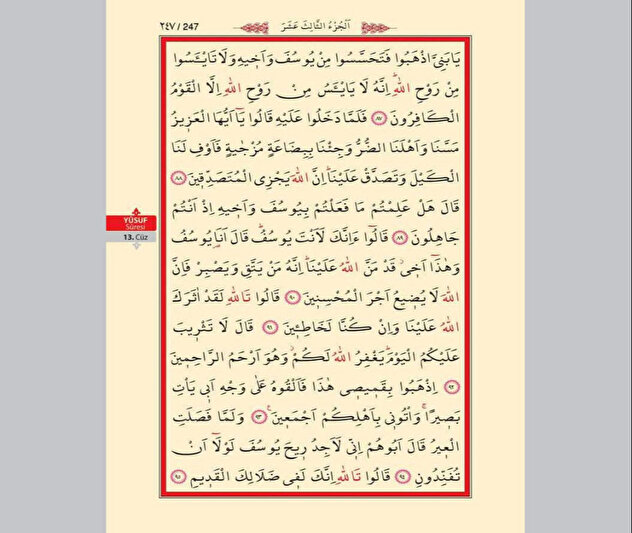 ٢٤٧ / 247
اَلْجُزْءُ الثَّالِثَ عَشَرَ
يَا بَنِيَّ اذْهَبُوا فَتَحَسَّسُوا مِنْ يُوسُفَ وَاَخِيهِ وَلَا تَايْـَٔسُوا
مِنْ رَوْحِ اللّٰهِۜ اِنَّهُ لَا يَايْـَٔسُ مِنْ رَوْحِ اللّٰهِ اِلَّا الْقَوْمُ
الْكَافِرُونَ ﴿٨٧﴾ فَلَمَّا دَخَلُوا عَلَيْهِ قَالُوا يَٓا اَيُّهَا الْعَزِيزُ
مَسَّنَا وَاَهْلَنَا الضُّرُّ وَجِئْنَا بِبِضَاعَةٍ مُزْجٰيةٍ فَاَوْفِ لَنَا
الْكَيْلَ وَتَصَدَّقْ عَلَيْنَاۜ اِنَّ اللّٰهَ يَجْزِي الْمُتَصَدِّقِينَ ﴿٨٨﴾
قَالَ هَلْ عَلِمْتُمْ مَا فَعَلْتُمْ بِيُوسُفَ وَاَخِيهِ اِذْ اَنْتُمْ
جَاهِلُونَ ﴿٨٩﴾ قَالُٓوا ءَاِنَّكَ لَاَنْتَ يُوسُفُۜ قَالَ اَنَا۬ يُوسُفُ
وَهٰذَٓا اَخِيۘ قَدْ مَنَّ اللّٰهُ عَلَيْنَاۜ اِنَّهُ مَنْ يَتَّقِ وَيَصْبِرْ فَاِنَّ
اللّٰهَ لَا يُضِيعُ اَجْرَ الْمُحْسِنِينَ ﴿٩٠﴾ قَالُوا تَاللّٰهِ لَقَدْ اٰثَرَكَ
اللّٰهُ عَلَيْنَا وَاِنْ كُنَّا لَخَاطِـِٔينَ ﴿٩١﴾ قَالَ لَا تَثْرِيبَ
عَلَيْكُمُ الْيَوْمَۜ يَغْفِرُ اللّٰهُ لَكُمْۘ وَهُوَ اَرْحَمُ الرَّاحِمِينَ
﴿٩٢﴾ اِذْهَبُوا بِقَمِيصِي هٰذَا فَاَلْقُوهُ عَلٰى وَجْهِ اَبِي يَأْتِ
بَصِيرًاۚ وَأْتُونِي بِاَهْلِكُمْ اَجْمَعِينَ۟ ﴿٩٣﴾ وَلَمَّا فَصَلَتِ
الْعِيرُ قَالَ اَبُوهُمْ اِنِّي لَاَجِدُ رِيحَ يُوسُفَ لَوْلَٓا اَنْ
تُفَنِّدُونِ ﴿٩٤﴾ قَالُوا تَاللّٰهِ اِنَّكَ لَفِي ضَلَالِكَ الْقَدِيمِ ﴿٩٥﴾
YÛSUF
Sûresi
13. Cüz